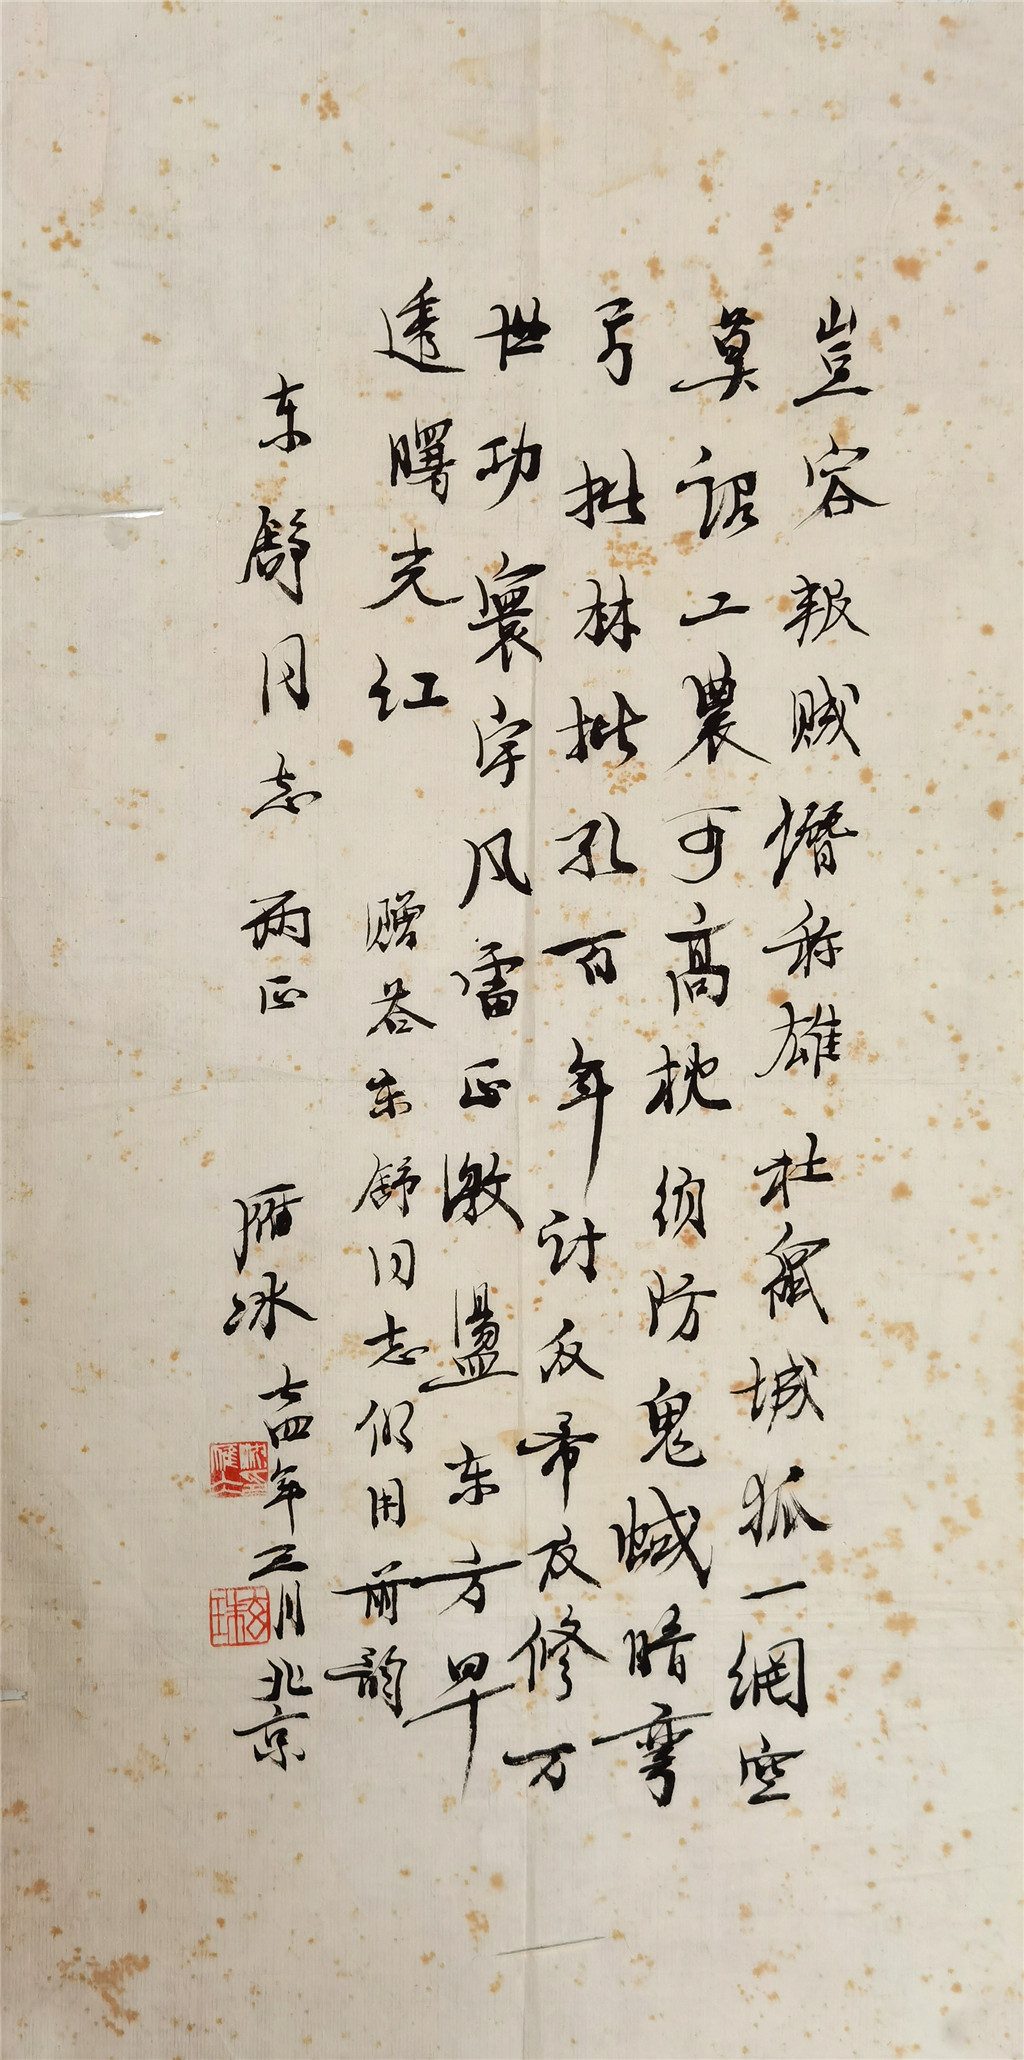 豈容叛賊僭称雄社鼠城狐一網空
莫谓工農可高枕须防鬼蜮暗彎
弓批林批孔百年计反帝反修万
世功寰宇风雷正激盪东方早
透曙光红 赠答东舒同志仍用前韵
东舒同志 两正 雁冰 七四年三月北京
玄珠